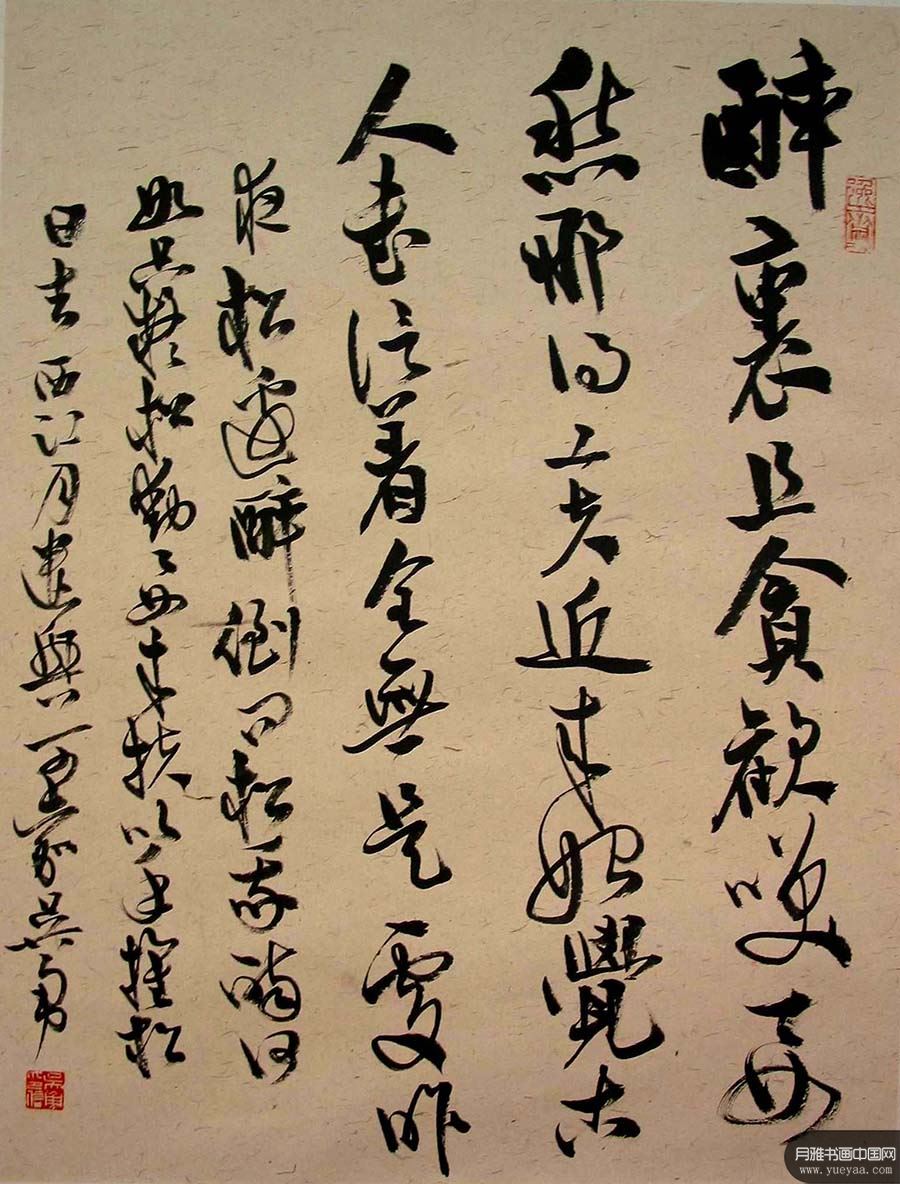 醉裏且貪歡笑要
愁那得工夫近来始覺古
人書信着全無是處昨
夜松邊醉倒問松我醉何
如只疑松動要来扶以手推松
曰去西江月遣興
月雅书画中国网
www.yueyaa.com